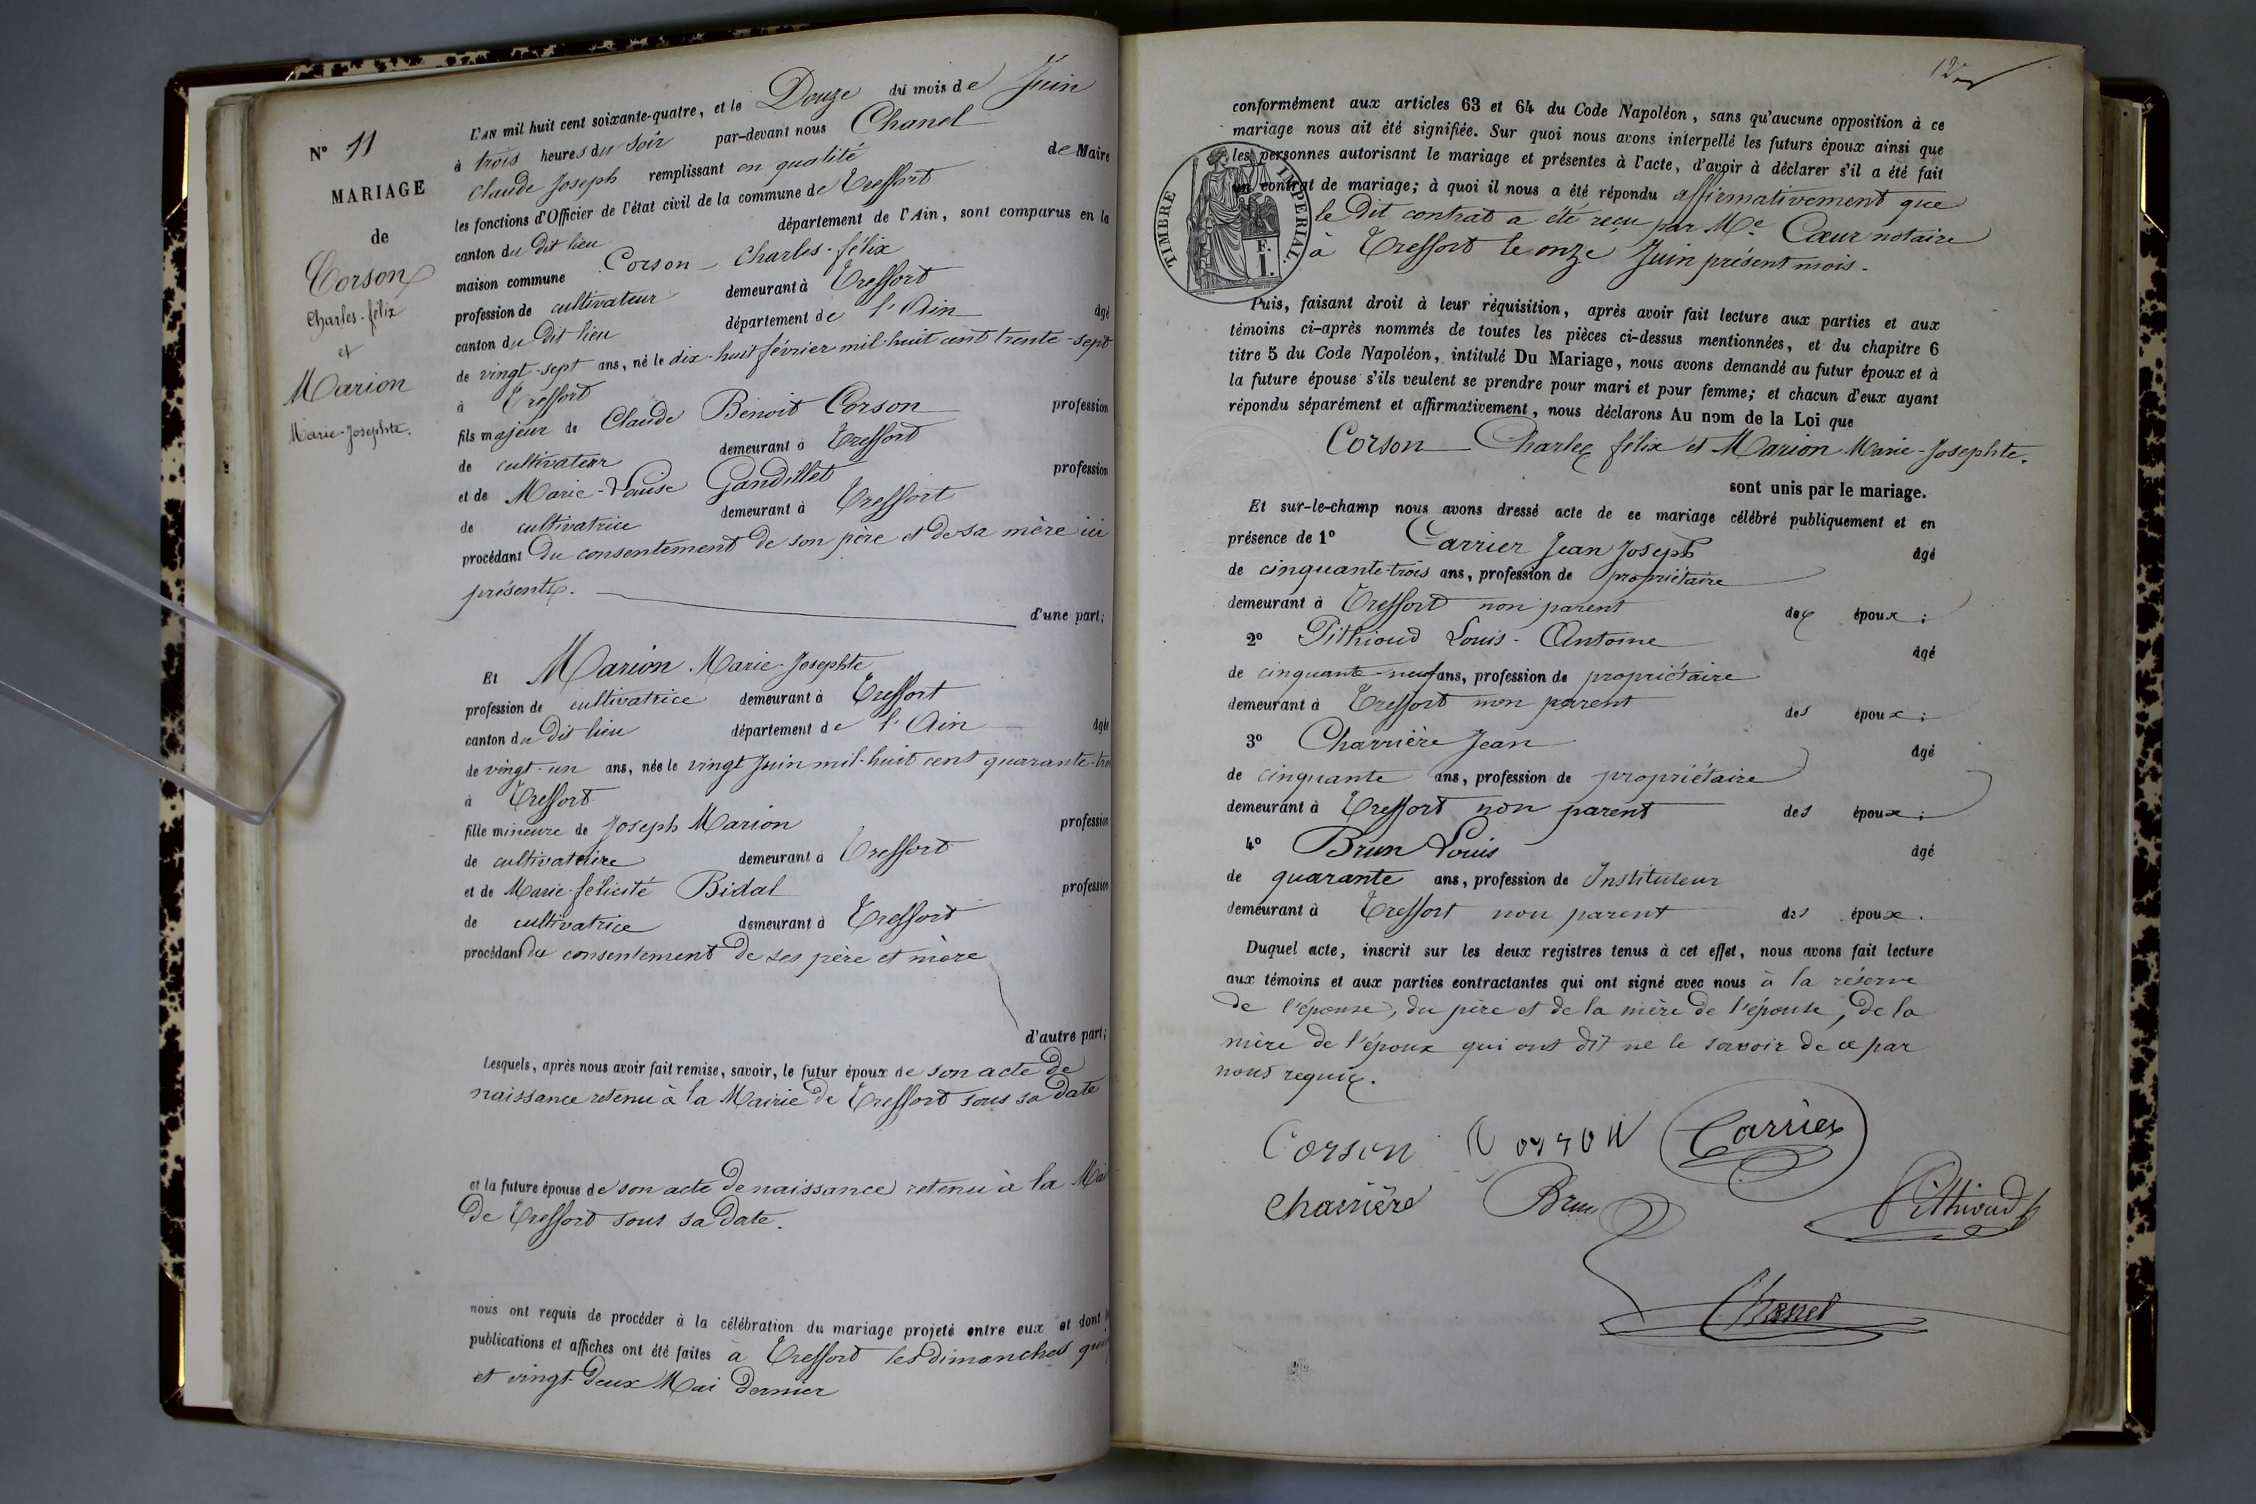 N° 11
MARIAGE
de
Corson
Charles-félix
et
Marion
Marie-Josephte.
L'AN mil huit cent soixante-quatre, et le Douze du mois de Juin
à trois heures du soir par-devant nous Chanel
Claude Joseph remplissant en qualité de Maire
les fonctions d'Officier de l'état civil de la commune de Treffort
canton du dit lieu département de l'Ain, sont comparus en la
maison commune Corson Charles-félix
profession de cultivateur demeurant à Treffort
canton du Dit lieu département de l'Ain âgé
de vingt-sept ans, né le dix-huit février mil-huit cent trente-sept
à Treffort
fils majeur de Claude Benoit Corson profession
de cultivateur demeurant à Treffort
et de Marie-Louise Gandillet profession
de cultivatrice demeurant à Treffort
procédant du consentement de son père et de sa mère ici
présents.
d'une part;
Et Marion Marie-Josephte
profession de cultivatrice demeurant à Treffort
canton du Dit lieu département de l'Ain âgée
de vingt-un ans, née le vingt Juin mil-huit cent quarante-
à Treffort
fille mineure de Joseph Marion profession
de demeurant à Treffort
et de Marie-félicité Bidal profession
de cultivatrice demeurant à Treffort
procédant du consentement de ses père et mère
d'autre part;
Lesquels, après nous avoir fait remise, savoir, le futur époux de son acte de
naissance retenu à la Mairie de Treffort sous sa date
et la future épouse de son acte de naissance retenu à la Mai
de Treffort sous sa date.
nous ont requis de procéder à la célébration du mariage projeté entre eux et dont
publications et affiches ont été faites à Treffort les dimanches
et vingt-deux Mai dernier
conformément aux articles 63 et 64 du Code Napoléon, sans qu'aucune opposition à ce
mariage nous ait été signifiée. Sur quoi nous avons interpellé les futurs époux ainsi que
les personnes autorisant le mariage et présentes à l'acte, d'avoir à déclarer s'il a été fait
un contrat de mariage; à quoi il nous a été répondu affirmativement que
le dit contrat a été reçu par Me Cœur notaire
à Treffort le onze Juin présent mois.
TIMBRE IMPERIAL.
1 F.
Puis, faisant droit à leur réquisition, après avoir fait lecture aux parties et aux
témoins ci-après nommés de toutes les pièces ci-dessus mentionnées, et du chapitre 6
titre 5 du Code Napoléon, intitulé Du Mariage, nous avons demandé au futur époux et à
la future épouse s'ils veulent se prendre pour mari et pour femme; et chacun d'eux ayant
répondu séparément et affirmativement, nous déclarons Au nom de la Loi que
Corson Charles félix et Marion Marie-Josephte.
sont unis par le mariage.
Et sur-le-champ nous avons dressé acte de ce mariage célébré publiquement et en
présence de 1° Carrier Jean Joseph âgé
de cinquante-trois ans, profession de propriétaire
demeurant à Treffort non parent des époux;
2° Pithioud Louis-Antoine âgé
de cinquante-neuf ans, profession de propriétaire
demeurant à Treffort non parent des époux;
3° Charrière Jean âgé
de cinquante ans, profession de propriétaire
demeurant à Treffort non parent des époux;
4° Brun Louis âgé
de quarante ans, profession de Instituteur
demeurant à Treffort non parent des époux.
Duquel acte, inscrit sur les deux registres tenus à cet effet, nous avons fait lecture
aux témoins et aux parties contractantes qui ont signé avec nous à la réserve
de l'épouse, du père et de la mère de l'épouse, de la
mère de l'époux qui ont dit ne le savoir de ce par
nous requis.
Corson Corson Carrier
Charrière Brun Pithioud
Chanel